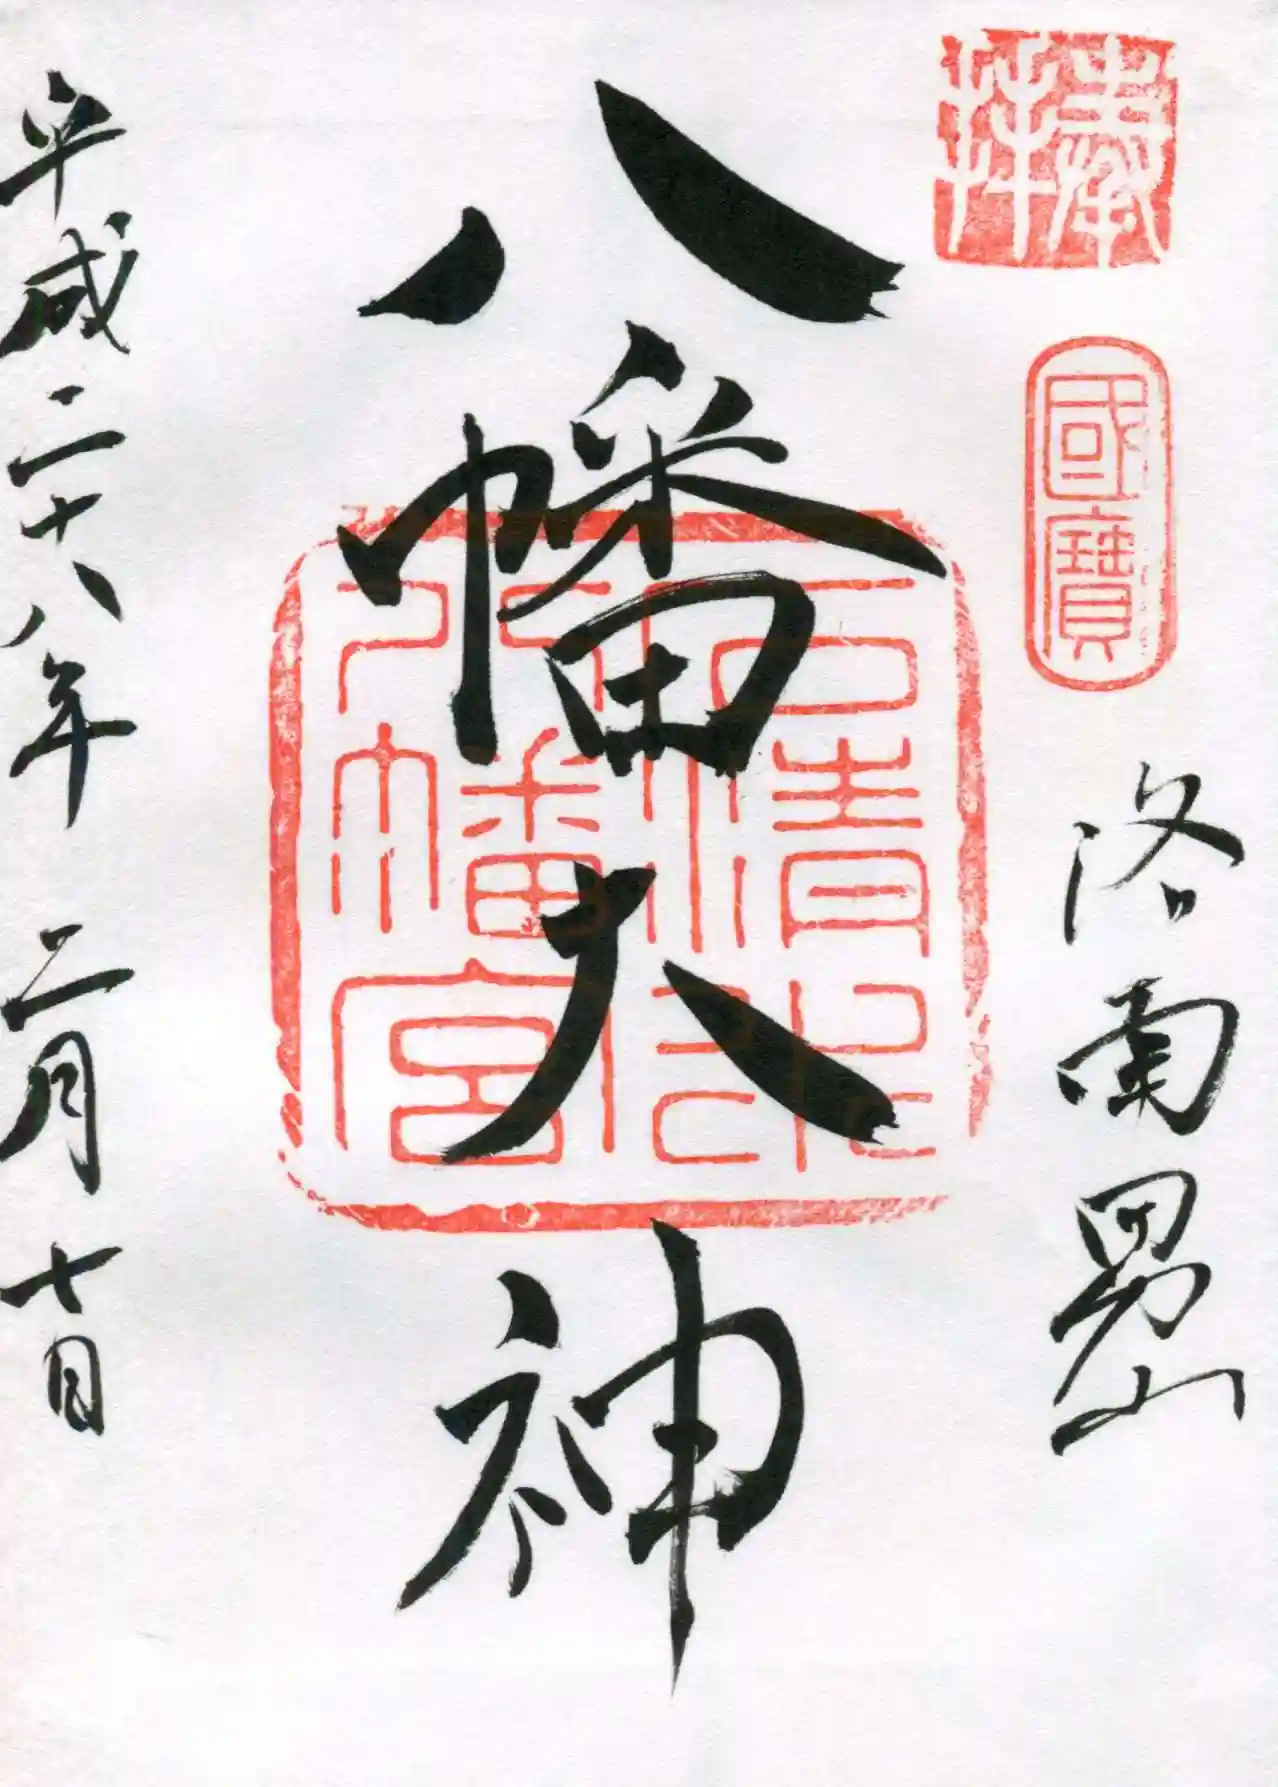 奉拝
國寶
洛南男山
八幡大神
石清水
八幡宮
平成二十八年二月七日